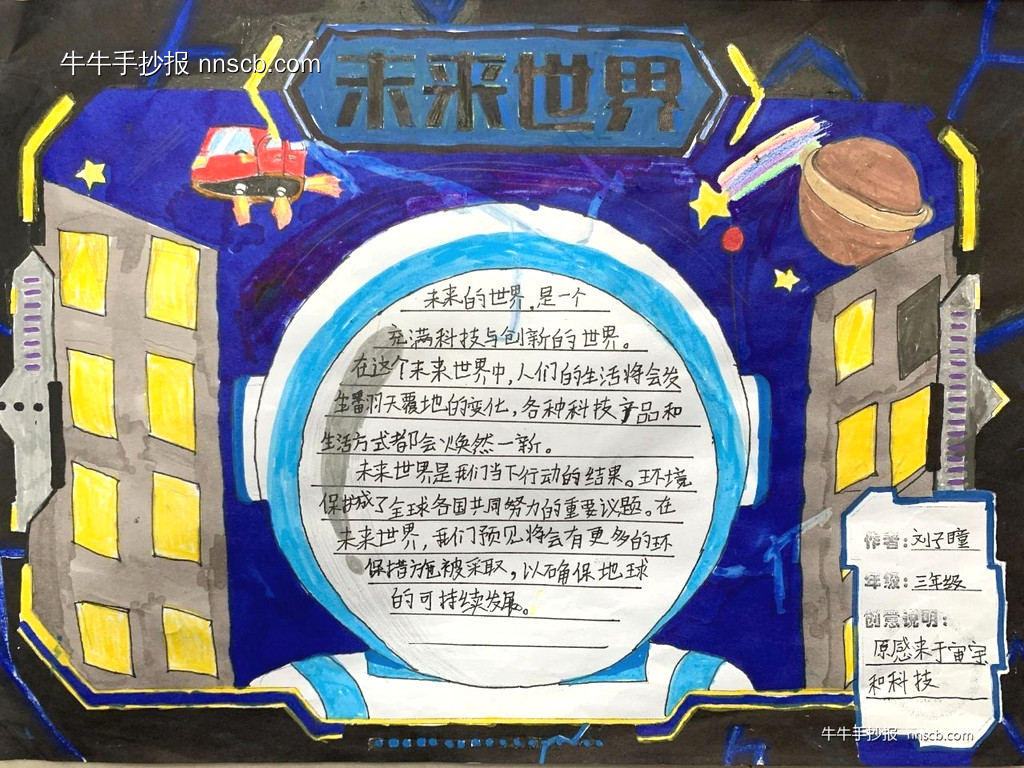 牛牛手抄报 nnscb.com
未来世界
未来的世界,是一个
充满科技与创新的的世界。
在这个未来世界中,人们的生活将会发
生翻天覆地的变化,各种科技产品和
生活方式都会焕然一新。
未来世界是我们当下行动的结果。环境
保护成了全球各国共同努力的重要议题。在
未来世界,我们预见将会有更多的环
保措施被采取,以确保地球
的可持续发展。
作者:刘子瞳
年级:三年级
创意说明:
原感来于宙宇
和科技
牛牛手抄报 nnscb.com